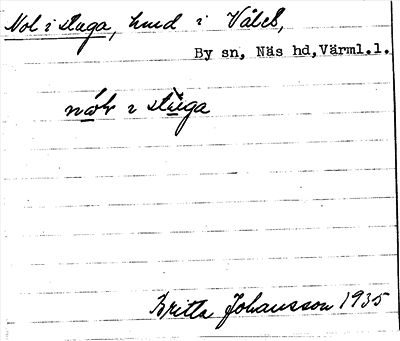 Nol i stuga, hmd i Våles,
By sn, Näs hd, Värml.l.
i stùga
Britta Johansson 1935